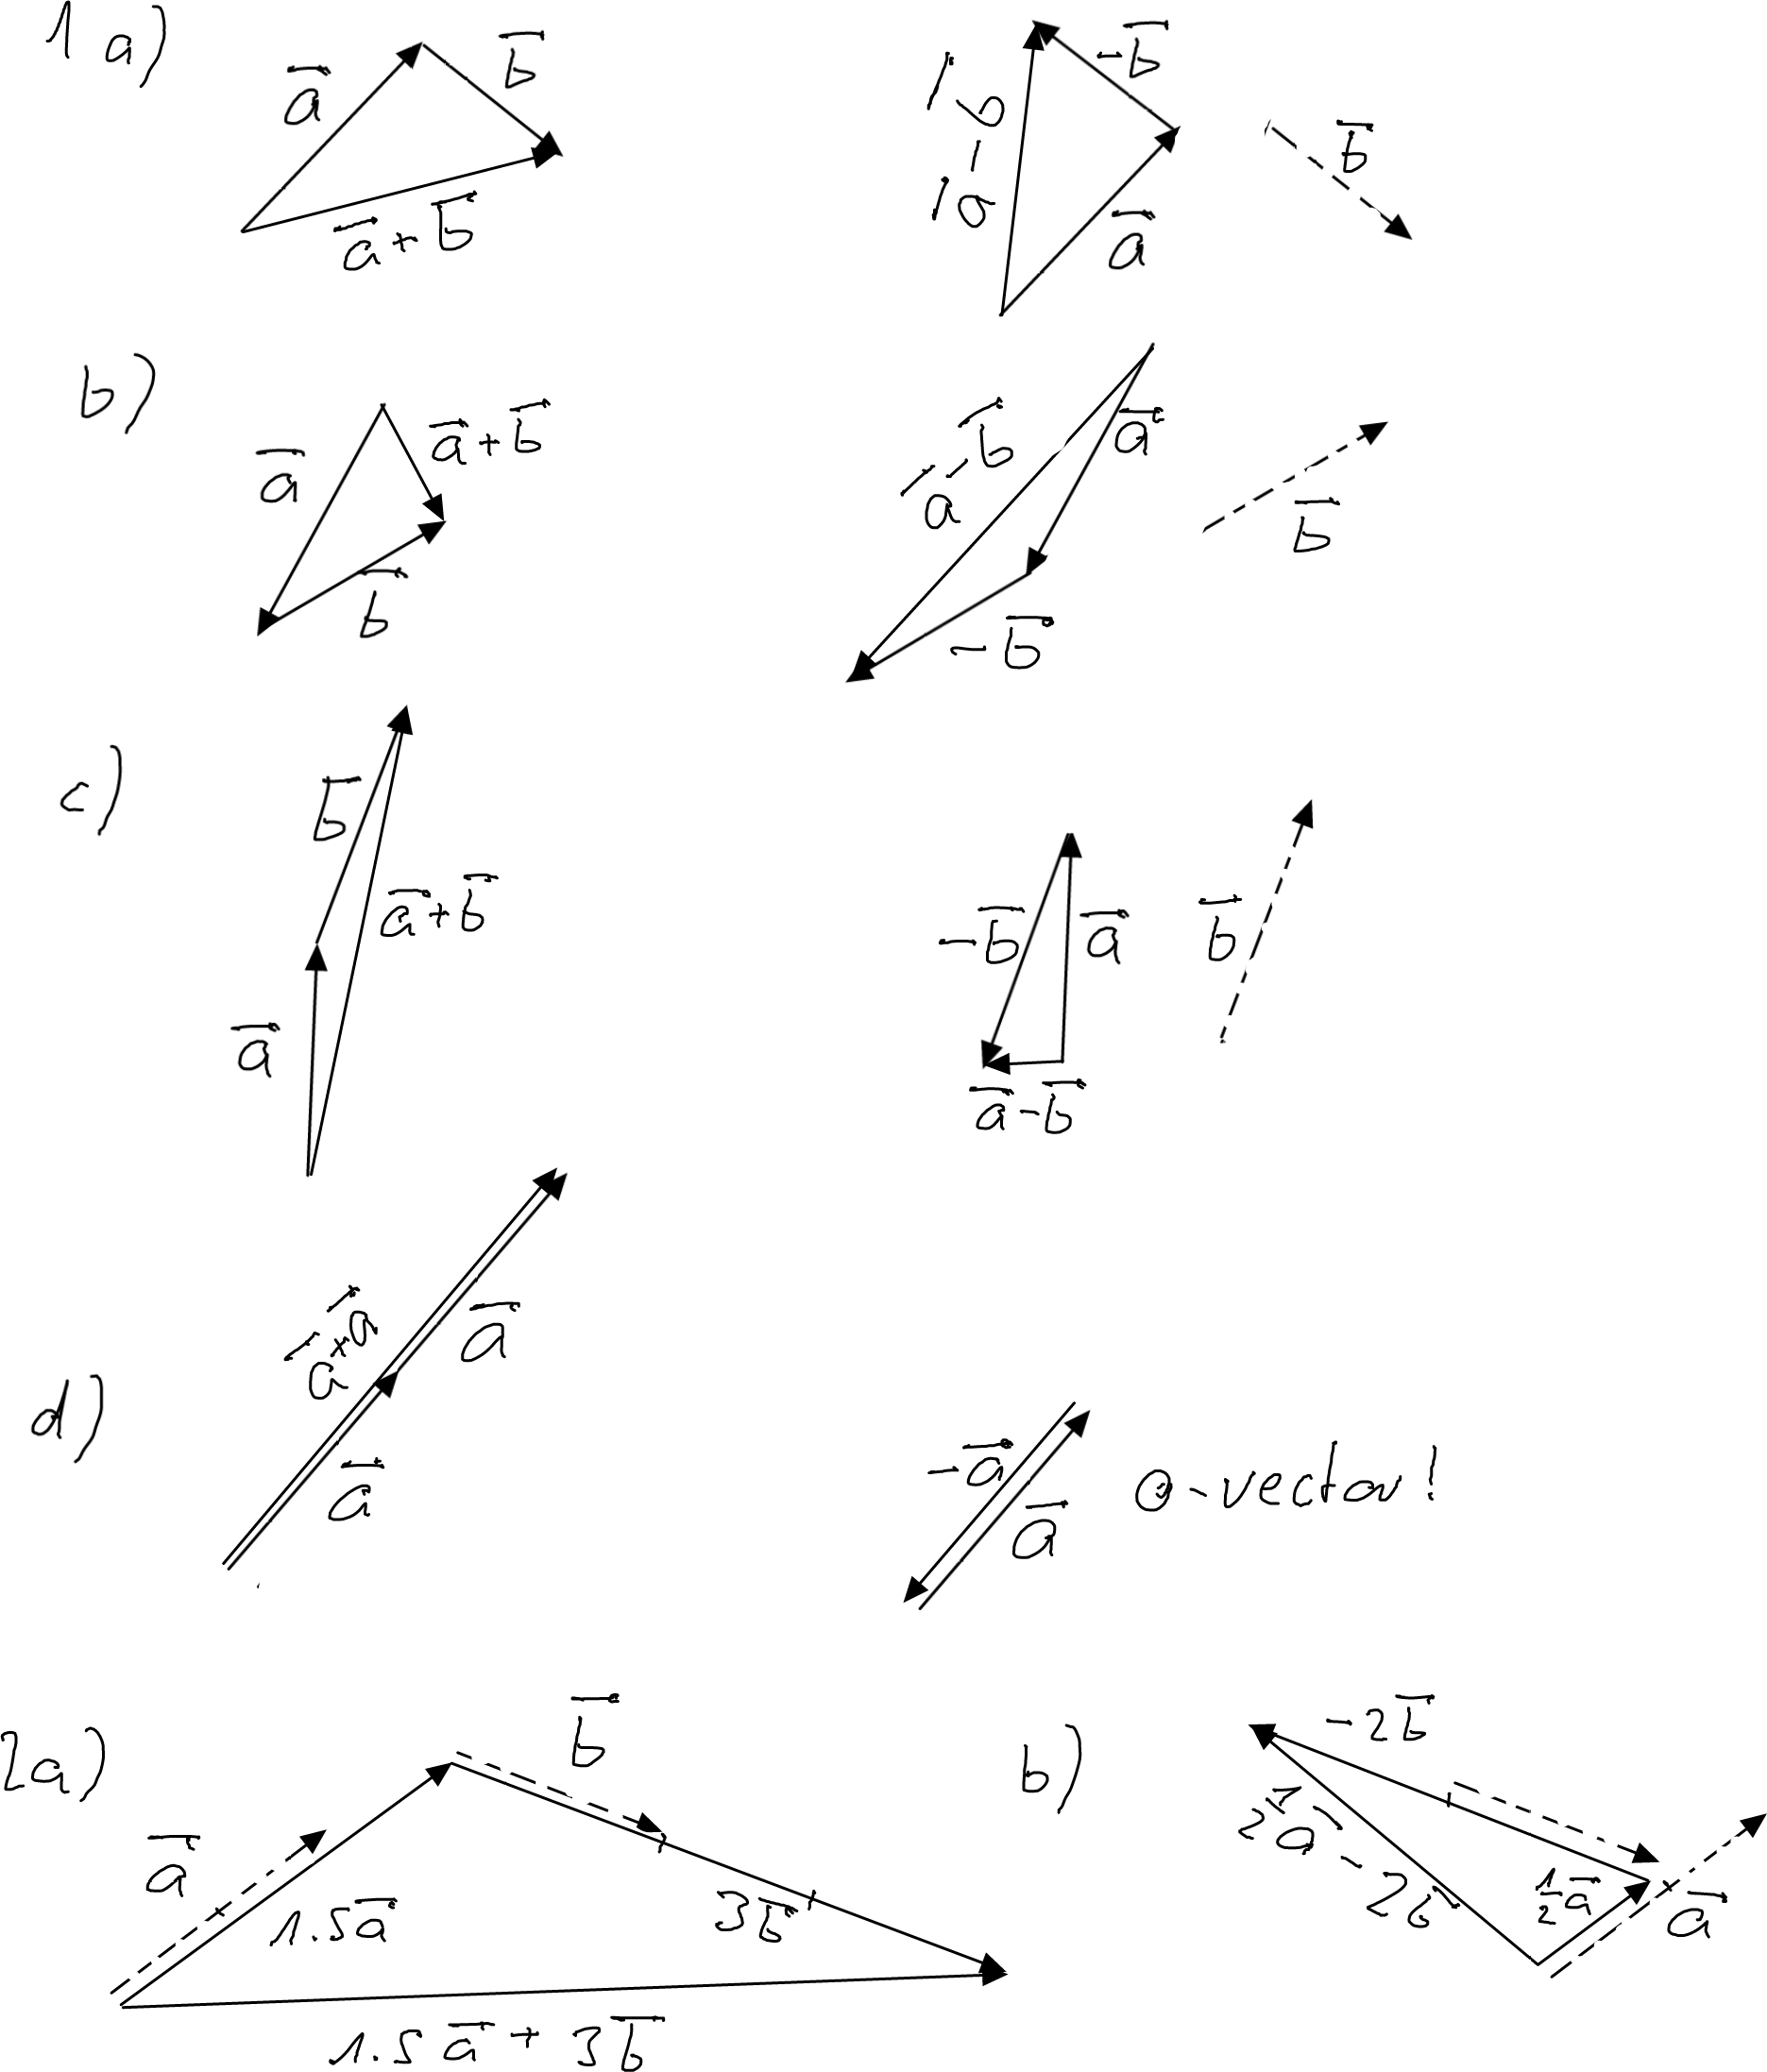 1 a)
a⃗ b⃗ a⃗ + b⃗
a⃗ - b⃗ -b⃗ a⃗ b⃗
b)
a⃗ a⃗ + b⃗ b⃗
a⃗ - b⃗ a⃗ -b⃗ b⃗
c)
b⃗ a⃗ + b⃗ a⃗
-b⃗ a⃗ a⃗ - b⃗ b⃗
d)
a⃗ + a⃗ a⃗ a⃗
-a⃗ a⃗ 0-vector!
2a)
a⃗ 1.5a⃗ b⃗ 3b⃗
1.5 a⃗ + 3b⃗
b)
-2b⃗
½a⃗ a⃗